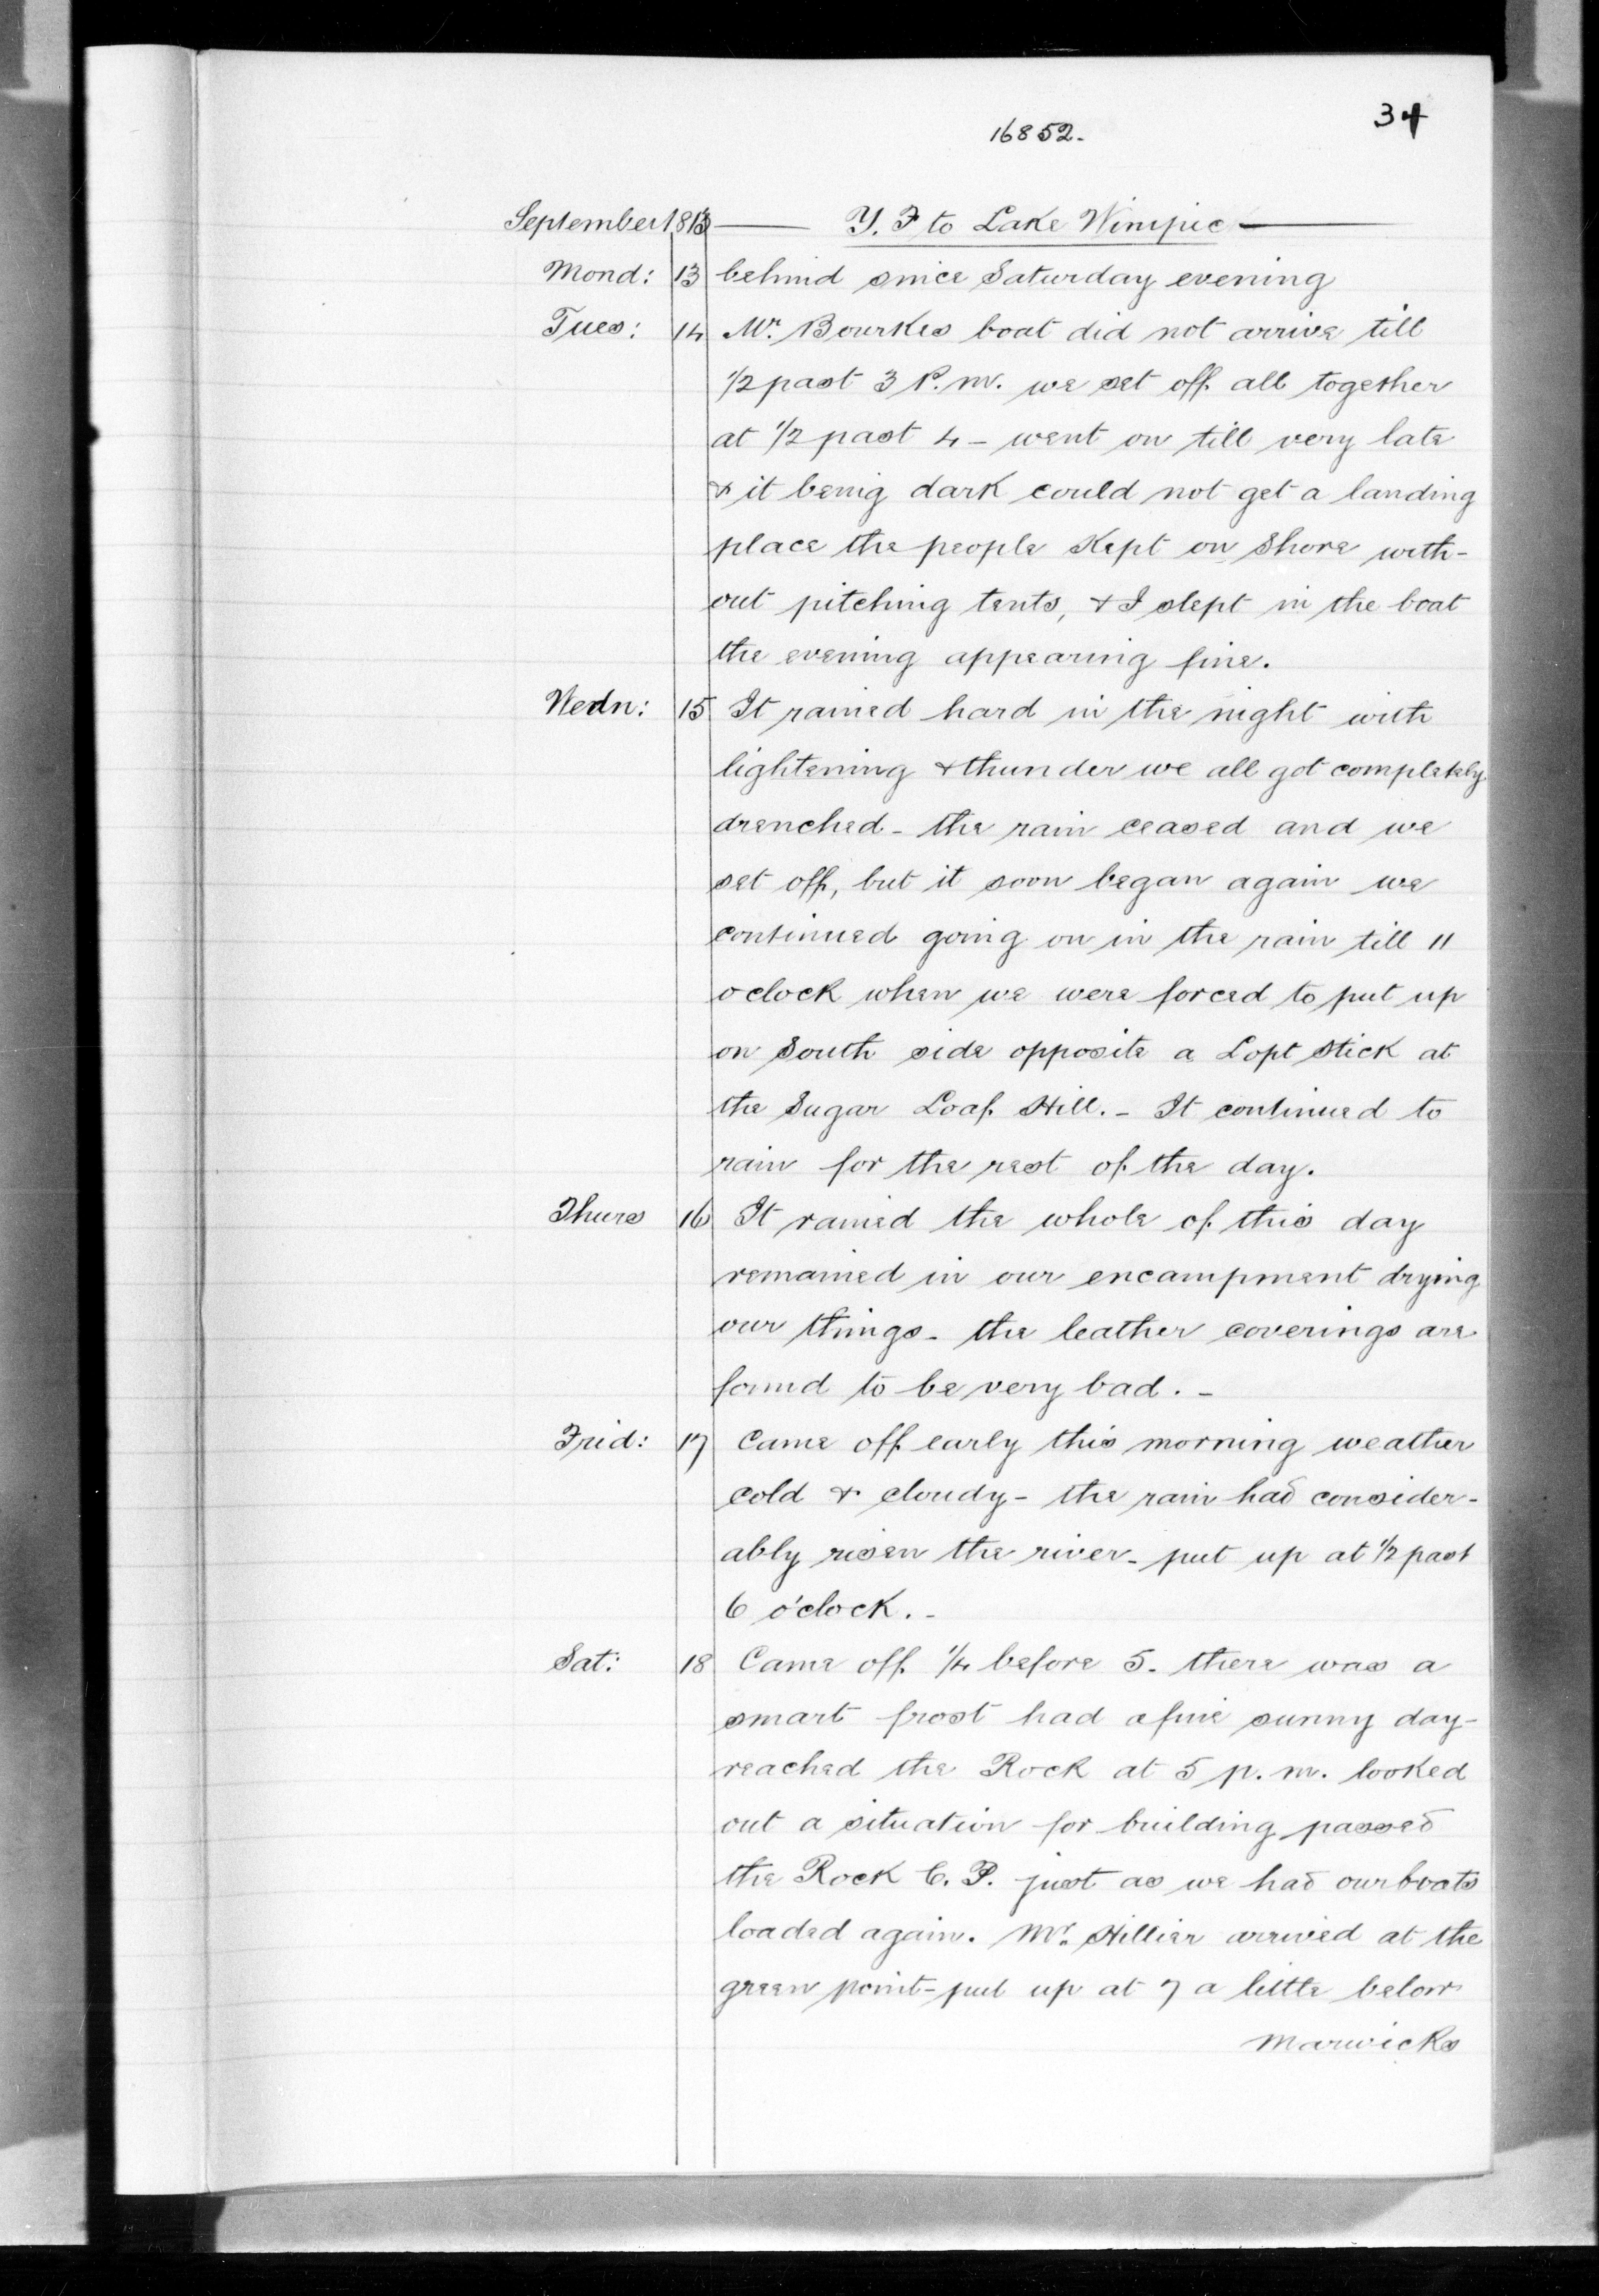 34
16852.
September 1813 — Y. F to Lake Winipic —
Mond: 13 behind since Saturday evening
Tues: 14 Mr. Bourkes boat did not arrive till
1/2 past 3 P.m. we set off all together
at 1/2 past 4 - went on till very late
& it being dark could not get a landing
place the people Kept on Shore with-
out pitching tents, & I slept in the boat
the evening appearing fine.
Wedn: 15 It rained hard in the night with
lightening & thunder we all got completely
drenched - the rain ceased and we
set off, but it soon began again we
continued going on in the rain till 11
oclock when we were forced to put up
on South side opposite a Lopt stick at
the Sugar Loaf Hill. - It continued to
rain for the rest of the day.
Thurs 16 It rained the whole of this day
remained in our encampment drying
our things - the leather coverings are
found to be very bad. -
Frid: 17 Came off early this morning weather
cold & cloudy - the rain had consider-
ably risen the river - put up at 1/2 past
6 o'clock. -
Sat: 18 Came off 1/4 before 5 - there was a
smart frost had a fine sunny day -
reached the Rock at 5 p.m. looked
out a situation for building passed
the Rock C. P. just as we had our boats
loaded again. Mr. Hillier arrived at the
green point - put up at 7 a little below
Marwicks